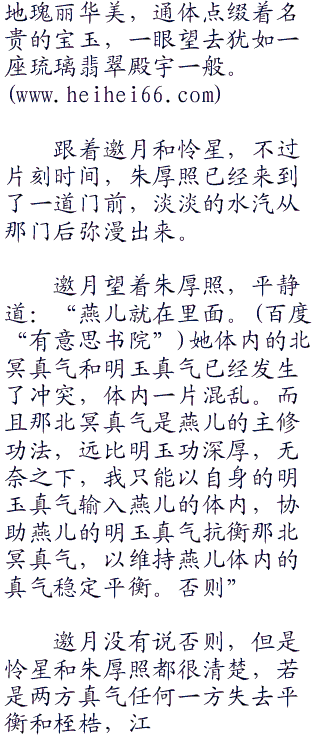 地瑰丽华美，通体点缀着名
贵的宝玉，一眼望去犹如一
座琉璃翡翠殿宇一般。
(www.heihei66.com)
跟着邀月和怜星，不过
片刻时间，朱厚照已经来到
了一道门前，淡淡的水汽从
那门后弥漫出来。
邀月望着朱厚照，平静
道：“燕儿就在里面。(百度
“有意思书院”)她体内的北
冥真气和明玉真气已经发生
了冲突，体内一片混乱。而
且那北冥真气是燕儿的主修
功法，远比明玉功深厚，无
奈之下，我只能以自身的明
玉真气输入燕儿的体内，协
助燕儿的明玉真气抗衡那北
冥真气，以维持燕儿体内的
真气稳定平衡。否则”
邀月没有说否则，但是
怜星和朱厚照都很清楚，若
是两方真气任何一方失去平
衡和桎梏，江